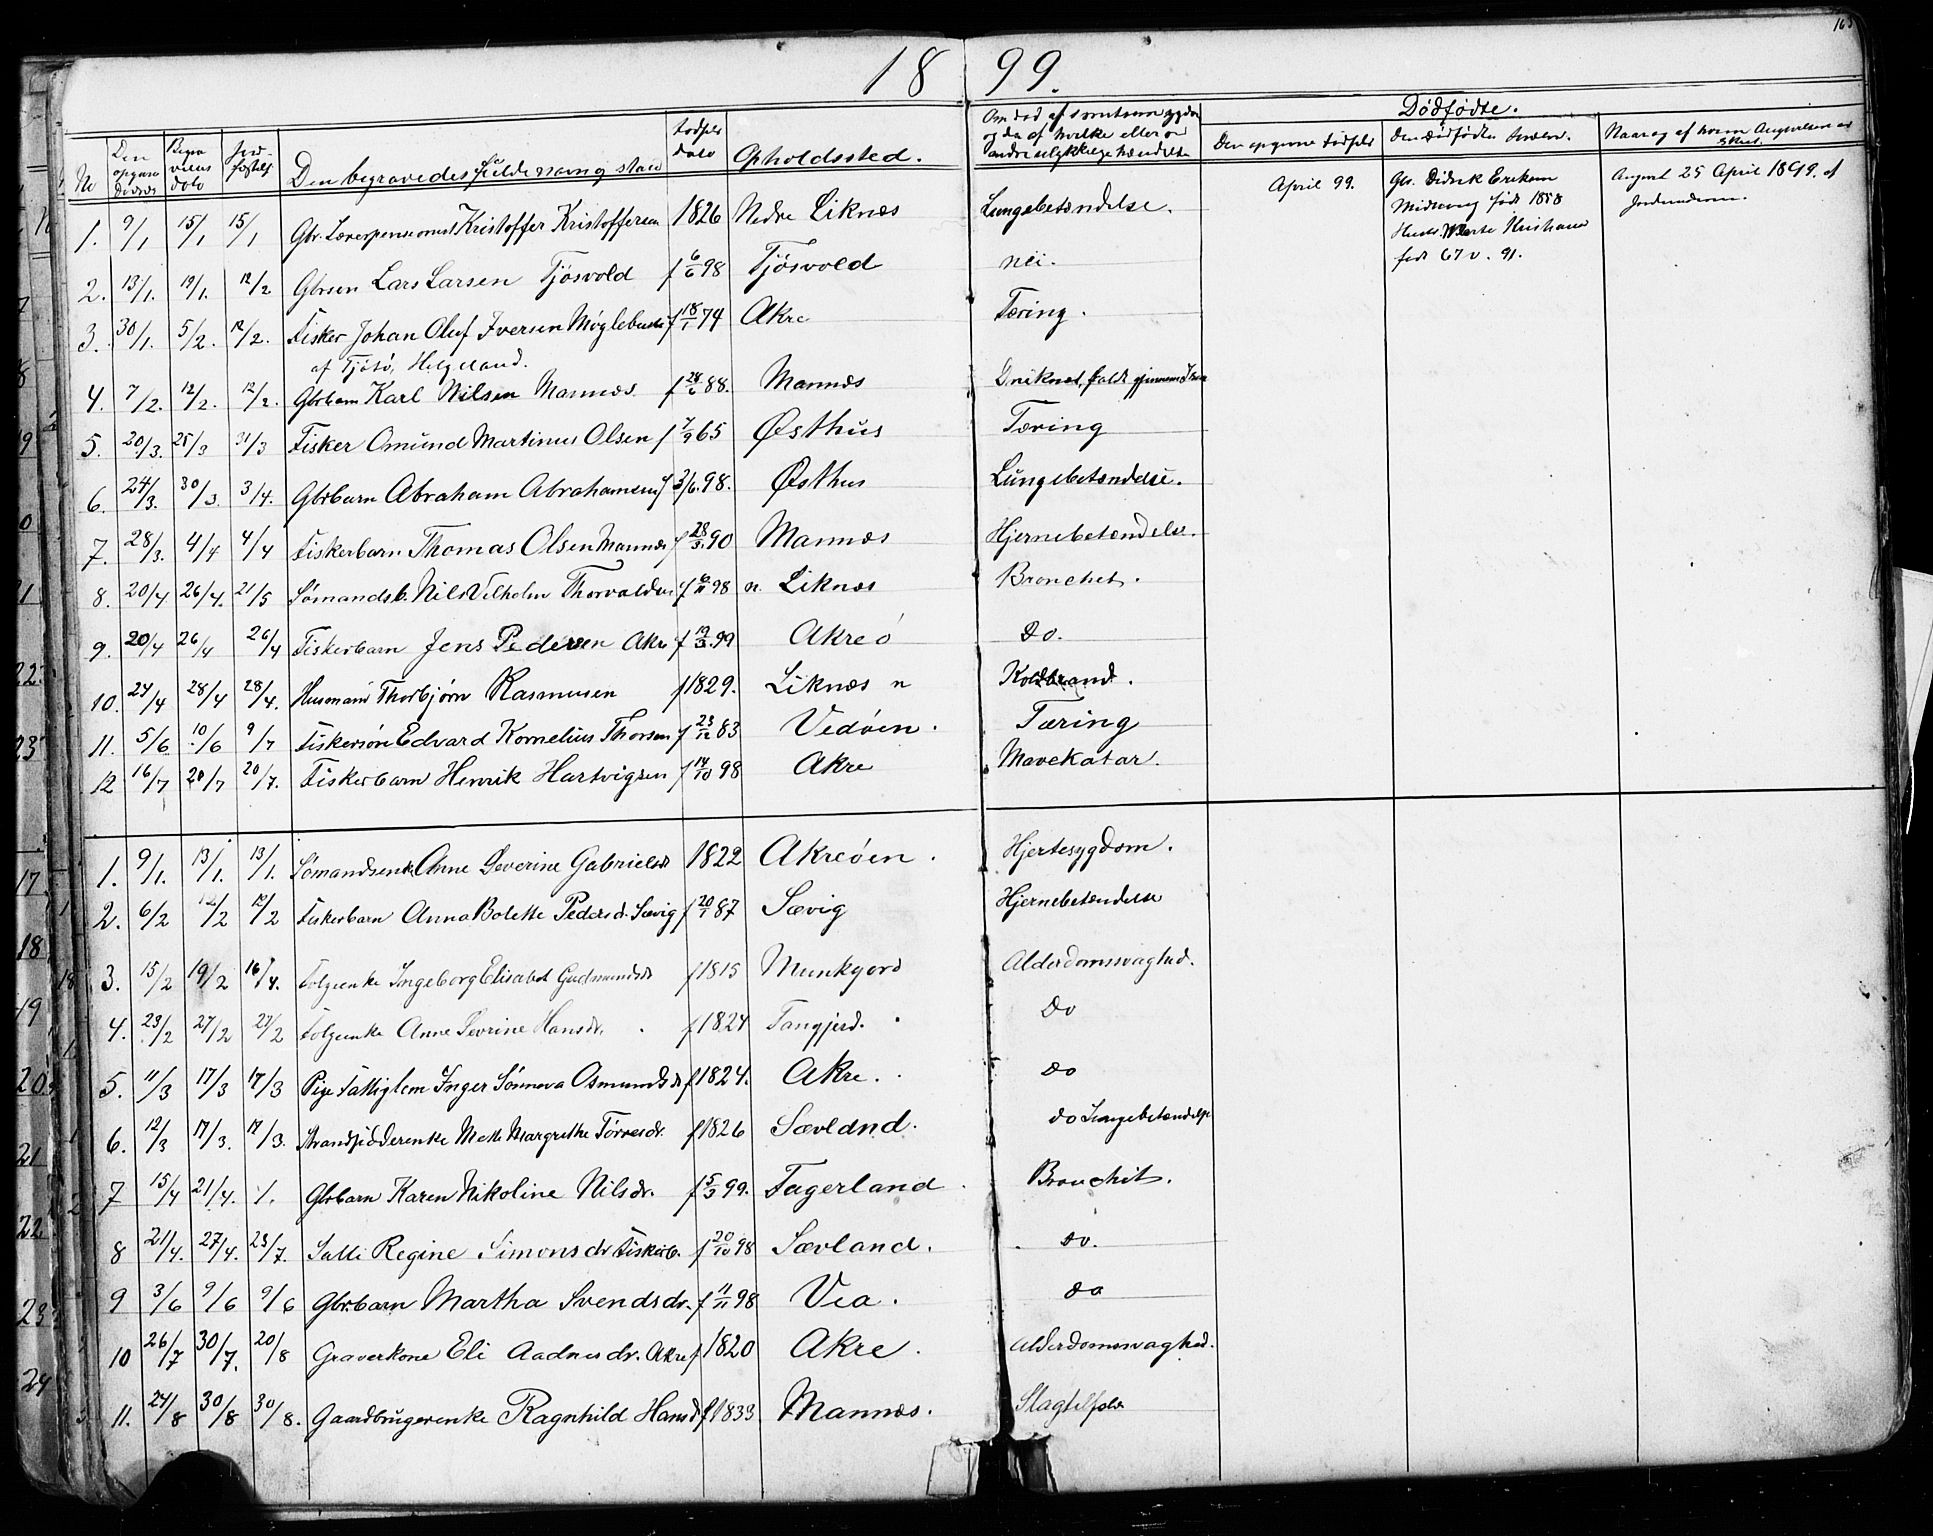 163
18 99.
No
Den opgivne Dødsda
Begravelses dato
Jordfæstelse
Den begravedes fulde navn og stand
fødsels dato
Opholdssted.
Dødfødte.
Den opgivne fødsels
1. 9/1 15/1 15/1 Gbr. Kristoffer Kristoffersen 1826 Nedre Liknæs Lungebetændelse. April 99. Gbr. Didrik Eriksen
født 1858
Kristiane
født 67 v. 91.
August 25 April 1899. af
2. 13/1. 19/1. 12/2 Gbrsøn Lars Larsen Tjösvold f 6/6 98 Tjösvold nei.
3. 30/1. 5/2. 12/2. Fisker Johan Oluf Iversen f 18/1 74 Akre Tæring.
af Tjötö, Helgeland.
4. 7/2. 12/2. 12/2. Gbrbarn Karl Nilsen Mannæs. f 28/6 88. Mannæs Druknet, faldt gjennem Isen
5. 20/3. 25/3 31/3 Fisker Omund Martinus Olsen f 7/9 65 Østhus Tæring
6. 24/3. 30/3. 3/4. Gbrbarn Abraham Abrahamsen f 3/6. 98. Østhus Lungebetændelse.
7. 28/3. 4/4 4/4 Fiskerbarn Thomas Olsen Mannæs f 28/3. 90 Mannæs Hjernebetændelse.
8. 20/4 26/4. 21/5 Sømandsb. Nils Vilhelm Thorvaldsen f 6/11 98 n. Liknæs Bronchit.
9. 20/4 26/4 26/4 Fiskerbarn Jens Pedersen Akre f 12/3. 99 Akreö do.
10. 24/4 28/4 28/4. Husmand Thorbjørn Rasmusen f 1829. Liknæs n Koldbrand.
11. 5/6 10/6 9/7 Fiskersøn Edvard Kornelius Thorsen f 23/12 83 Vedöen. Tæring
12 16/7 20/7 20/7. Fiskerbarn Henrik Hartvigsen f 14/10 98 Akre Mavekatar.
1. 9/1. 13/1. 13/1. Sømandsenk. Anne Severine Gabrielsdr 1822 Akreöen. Hjertesygdom.
2. 6/2 12/2 12/2 Fiskerbarn Anna Bolette Pedersd. Sævig f 20/1 87 Sævig Hjernebetændelse
3. 15/2 19/2 16/4. Folgeenke Ingeborg Elisabet Gudmundsdr f 1815 Munkjord Alderdomssvaghed.
4. 23/2 27/2 27/2 Folgeenke Anne Sevrine Hansdr. f 1824 Tangjerd. Do
5. 11/3 17/3 17/3 Pige Fattiglem Inger Sønneva Osmundsdr f 1824. Akre. do
6. 12/3 17/3. 17/3. Strandsidderenke Mette Margrethe Torresdr. f 1826 Sævland. do Lungebetændelse
7 15/4 21/4. /. Gbrbarn Karen Nikoline Nilsdr. f 5/3 99. Fagerland Bronchit.
8 21/4. 27/4. 23/7. Salli Regine Simonsdr Fiskerb. f 20/10 98 Sævland. do.
9 3/6 9/6 9/6 Gbrbarn Martha Svendsdr. f 11/11 98 Vea. do
10 26/7 30/7. 20/8 Graverkone Eli Aadnesdr. Akre f 1820 Akre. Alderdomssvaghed.
11. 24/8 30/8 30/8. Gaardbrugerenke Ragnhild Hansdr f 1833 Mannæs. Slagtilfælde